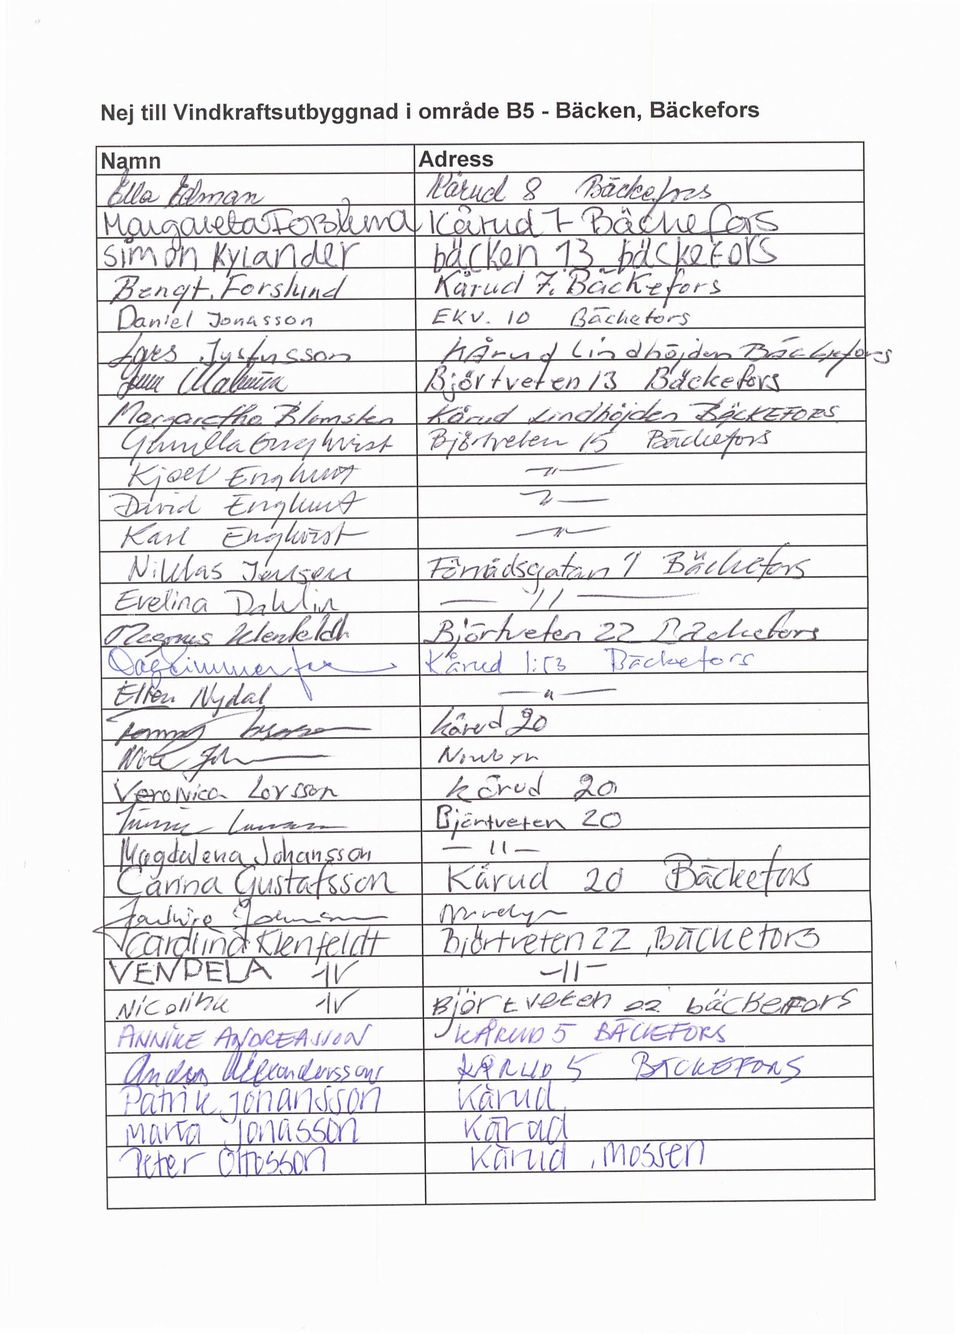 Nej till Vindkraftsutbyggnad i område B5 - Bäcken, Bäckefors
Namn Adress
Ella Edman Kårud 8 Bäckefors
Margareta Forslund Kårud 7 Bäckefors
Simon Kylander bäcken 13 bäckefors
Bengt, Forslund Kårud 7, Bäckefors
Daniel Jonasson EKV. 10 Bäckefors
Lars Justusson Kårud Lindhöjden Bäckefors
Björtveten 13 Bäckefors
Margaretha Blomsten Kårud Lindhöjden BÄCKEFORS
Gunilla Engqvist Björtveten 15 Bäckefors
Kjell -"-
David -"-
Karl Engkvist -"-
Niklas Jensen Förrådsgatan 1 Bäckefors
Evelina Dahlin -"-
Magnus Klenfeldh Björtveten 22 Bäckefors
Kårud 1:13 Bäckefors
Ellen Nydal -"-
Kårud 20
Veronica Larsson Kårud 20
Björtveten 20
Magdalena Johansson -"-
Carina Gustafsson Kårud 20 Bäckefors
Carolina Klenfeldt Björtveten 22, Bäckefors
VENDELA -"- -"-
Nicolina -"- Björtveten 22 bäckefors
ANNIKE ANDREASSON KÅRUD 5 BÄCKEFORS
KÅRUD 5 BÄCKEFORS
Patrik Johansson Kårud
Maria Jonasson Kårud
Peter Ottosson Kårud, Mossen